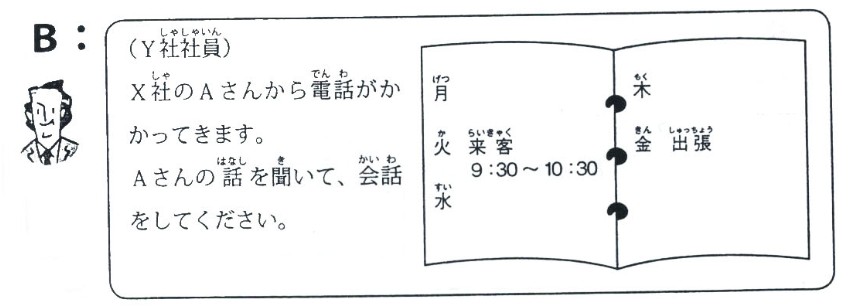 B：
（Y社社員）
X社のAさんから電話がか
かってきます。
Aさんの話を聞いて、会話
をしてください。
月
火 来客
9:30～10:30
水
木
金 出張